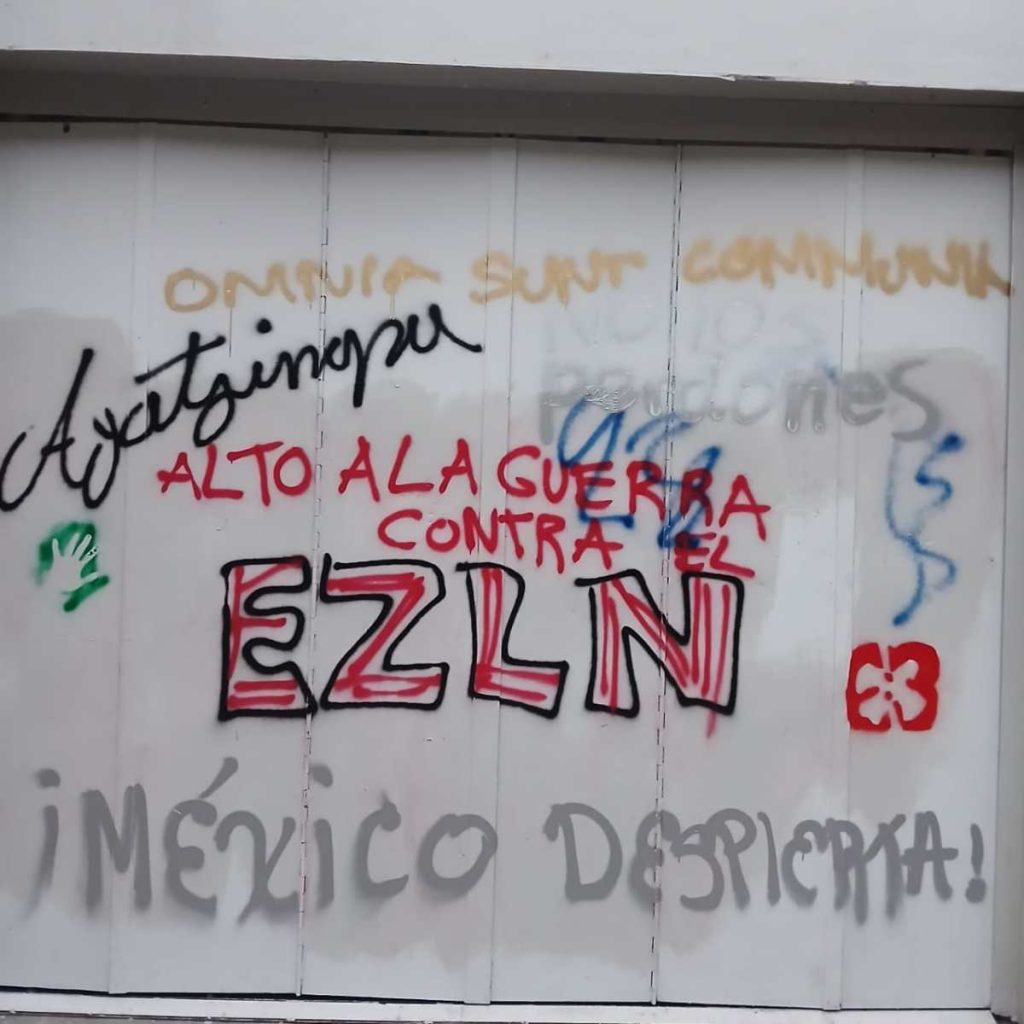 OMNIA SUNT COMMUNIA
No los
perdones
Ayotzinapa
ALTO A LA GUERRA
CONTRA EL
EZLN
¡MÉXICO DESPIERTA!